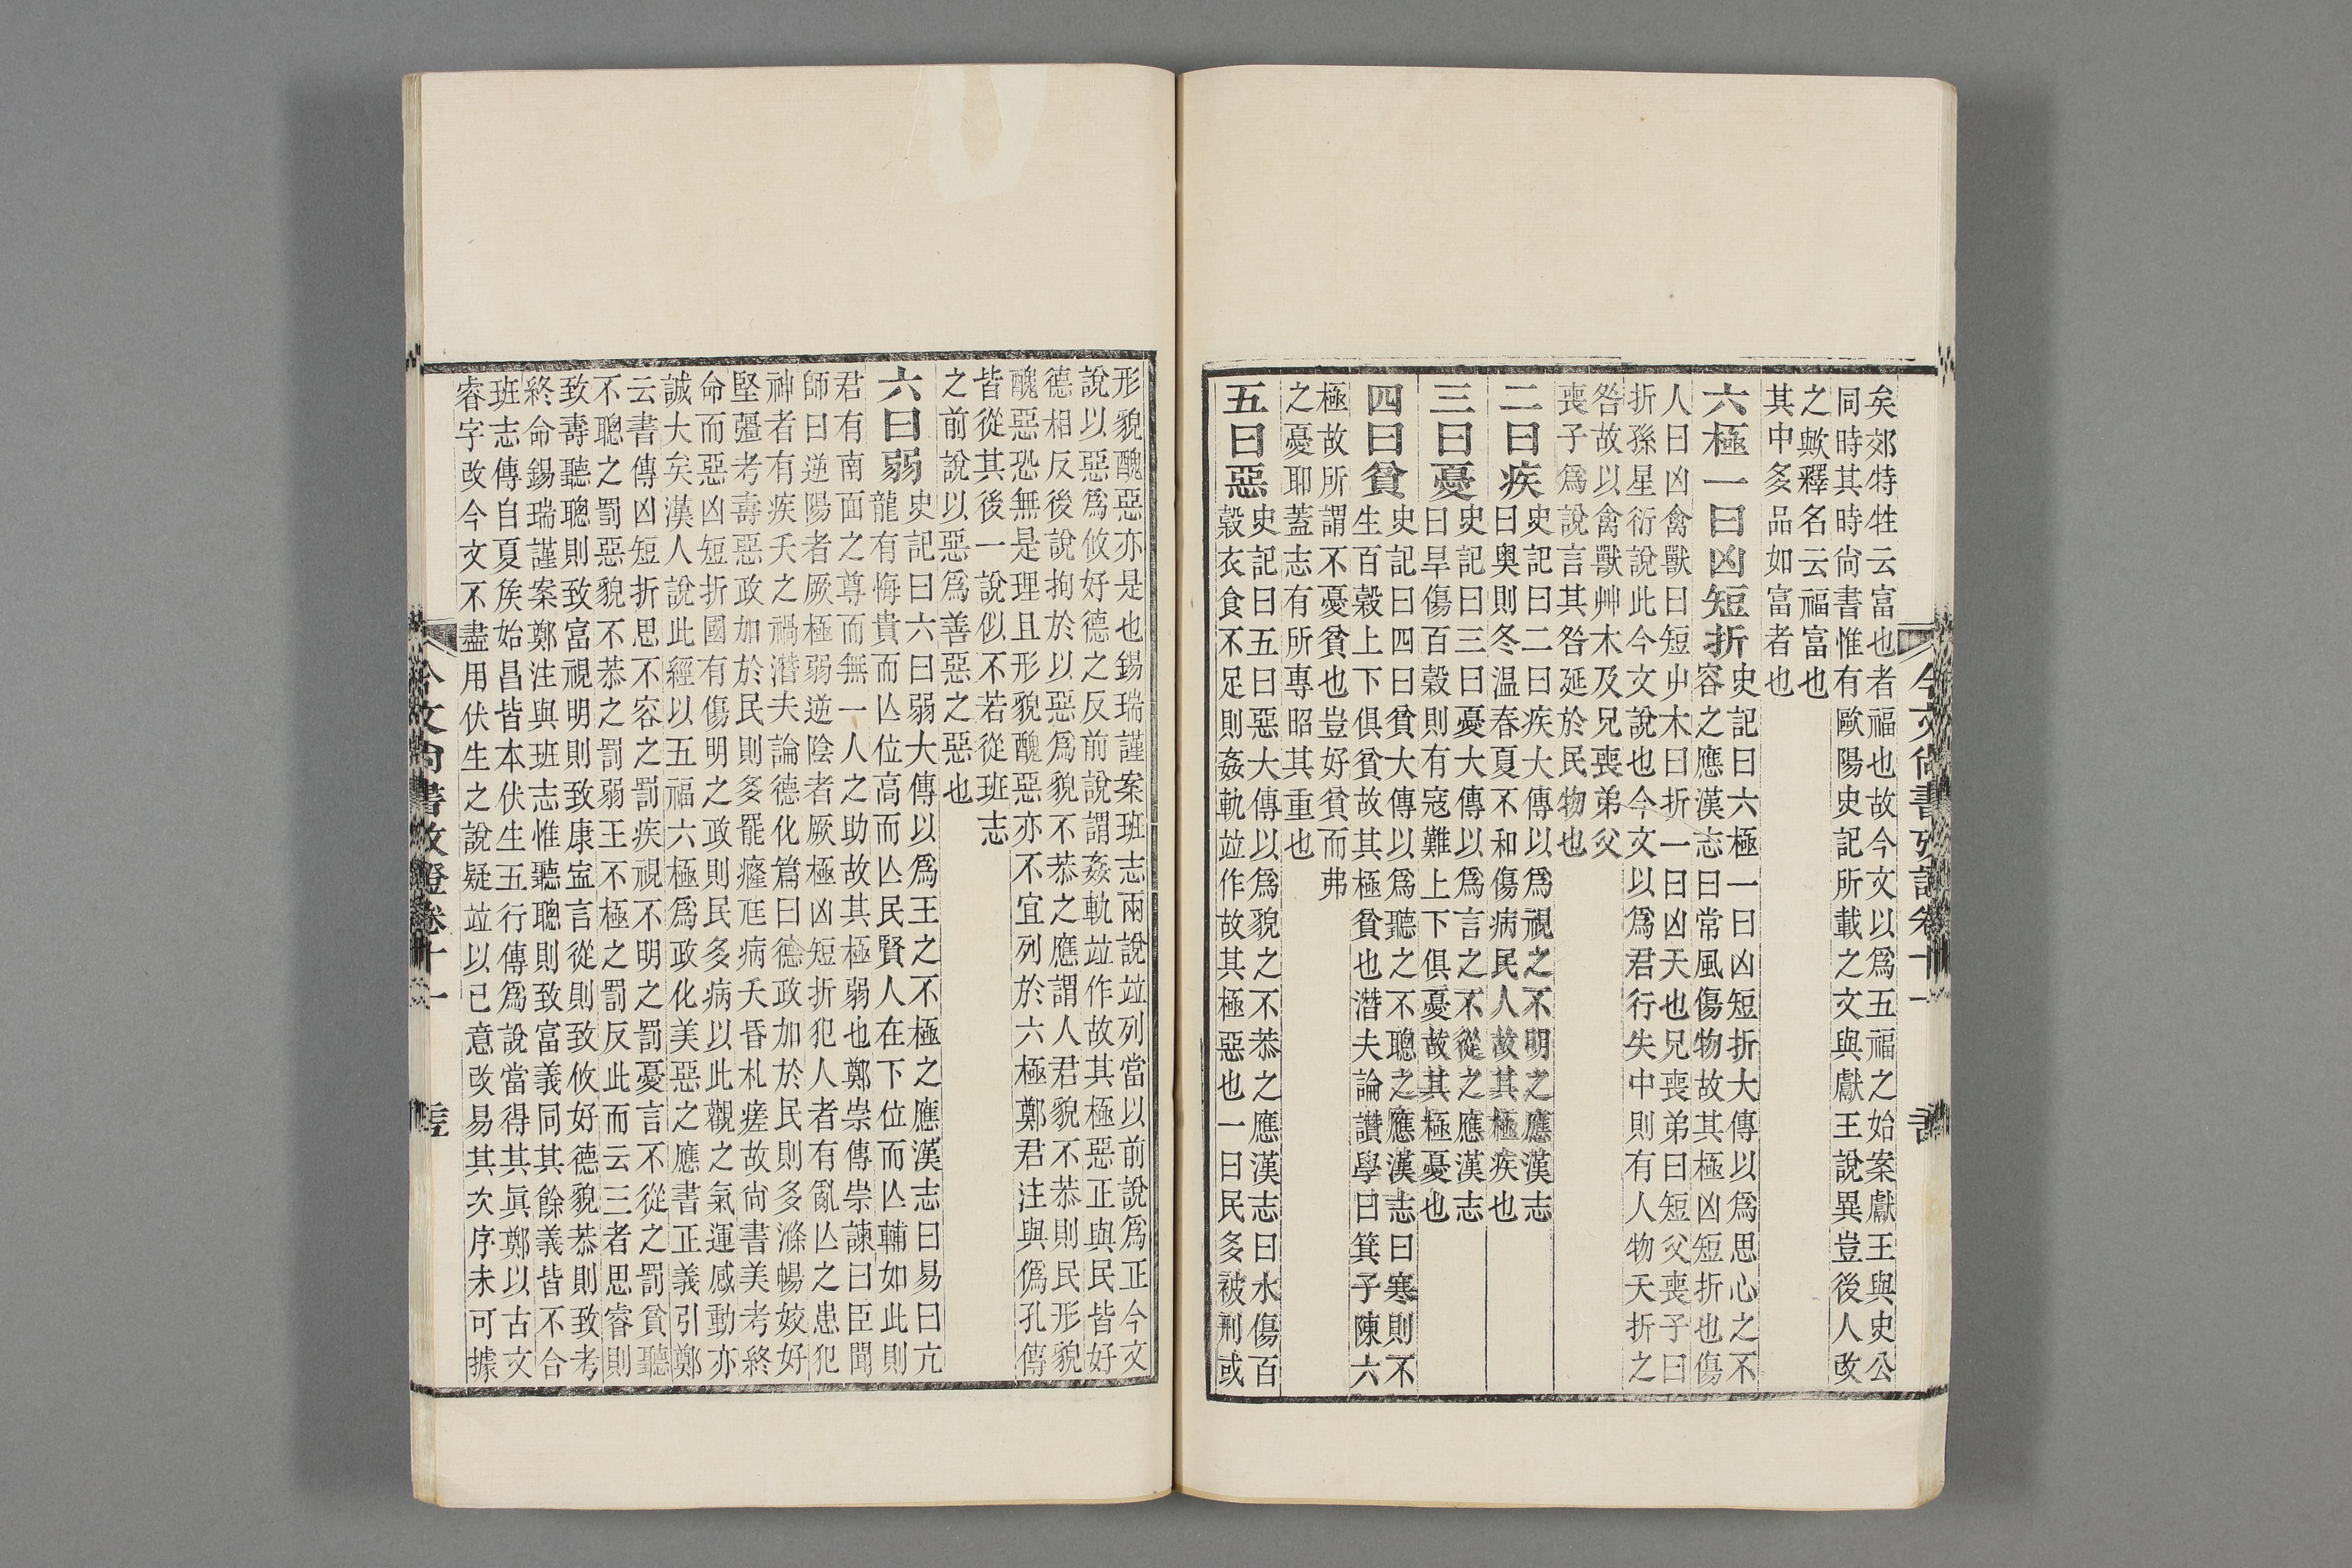 矣郊特牲云富也者福也故今文以爲五福之始案獻王與史公
同時其時尙書惟有歐陽史記所載之文與獻王說異豈後人改
之歟釋名云福富也
其中多品如富者也
六極一曰凶短折史記曰六極一曰凶短折大傳以爲思心之不
容之應漢志曰常風傷物故其極凶短折也傷
人曰凶禽獸曰短屮木曰折一曰凶夭也兄喪弟曰短父喪子曰
折孫星衍說此今文說也今文以爲君行失中則有人物夭折之
咎故以禽獸艸木及兄喪弟父
喪子爲說言其咎延於民物也
二曰疾史記曰二曰疾大傳以爲視之不明之應漢志
曰奧則冬温春夏不和傷病民人故其極疾也
三曰憂史記曰三曰憂大傳以爲言之不從之應漢志
曰旱傷百穀則有寇難上下俱憂故其極憂也
四曰貧史記曰四曰貧大傳以爲聽之不聰之應漢志曰寒則不
生百穀上下俱貧故其極貧也潛夫論讚學曰箕子陳六
極故所謂不憂貧也豈好貧而弗
之憂耶蓋志有所專昭其重也
五曰惡史記曰五曰惡大傳以爲貌之不恭之應漢志曰水傷百
穀衣食不足則姦軌竝作故其極惡也一曰民多被刑或
今文尙書攷證卷十一
形貌醜惡亦是也錫瑞謹案班志兩說竝列當以前說爲正今文
說以惡爲攸好德之反前說謂姦軌竝作故其極惡正與民皆好
德相反後說拘於以惡爲貌不恭之應謂人君貌不恭則民形貌
醜惡恐無是理且形貌醜惡亦不宜列於六極鄭君注與僞孔傳
皆從其後一說似不若從班志
之前說以惡爲善惡之惡也
六曰弱史記曰六曰弱大傳以爲王之不極之應漢志曰易曰亢
龍有悔貴而亾位高而亾民賢人在下位而亾輔如此則
君有南面之尊而無一人之助故其極弱也鄭崇傳崇諫曰臣聞
師曰逆陽者厥極弱逆陰者厥極凶短折犯人者有亂亾之患犯
神者有疾夭之禍潛夫論德化篇曰德政加於民則多滌暢姣好
堅彊考壽惡政加於民則多罷癃尫病夭昏札瘥故尙書美考終
命而惡凶短折國有傷明之政則民多病以此觀之氣運感動亦
誠大矣漢人說此經以五福六極爲政化美惡之應書正義引鄭
云書傳凶短折思不容之罰疾視不明之罰憂言不從之罰貧聽
不聰之罰惡貌不恭之罰弱王不極之罰反此而云三者思睿則
致壽聽聰則致富視明則致康寍言從則致攸好德貌恭則致考
終命錫瑞謹案鄭注與班志惟聽聰則致富義同其餘義皆不合
班志傳自夏矦始昌皆本伏生五行傳爲說當得其眞鄭以古文
睿字改今文不盡用伏生之說疑竝以已意改易其次序未可據
今文尙書攷證卷十一